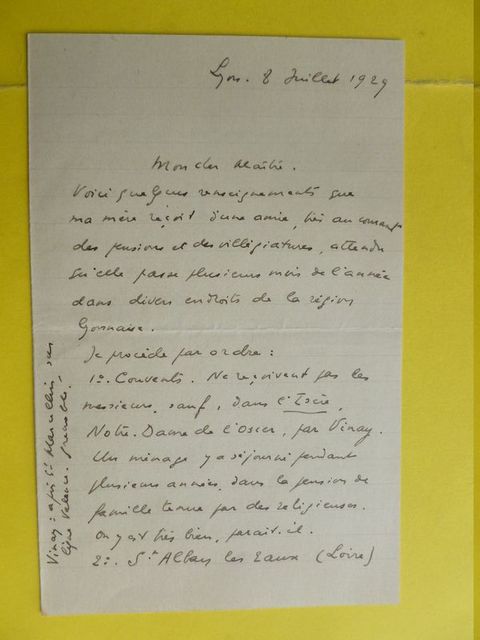 Lyon. 8 Juillet 1929
Mon cher Maître.
Voici quelques renseignements que
ma mère reçoit d'une amie, très au courant
des pensions et des villégiatures, attendu
qu'elle passe plusieurs mois de l'année
dans divers endroits de la région
lyonnaise.
Je procède par ordre :
1º. Couvents. Ne reçoivent pas les
messieurs, sauf, dans l'Isère,
Notre-Dame de l'Osier, par Vinay.
Un ménage y a séjourné pendant
plusieurs années, dans la pension de
famille tenue par des religieuses.
On y est très bien, paraît-il.
2º. St Alban les Eaux (Loire)
Vinay : après St Marcellin, sur
ligne Valence-Grenoble.